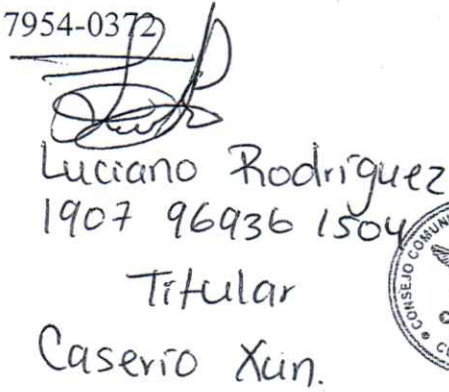 7954-0372
Luciano Rodríguez
1907 96936 1504
Titular
Caserío Xun.
CONSEJO COMUN